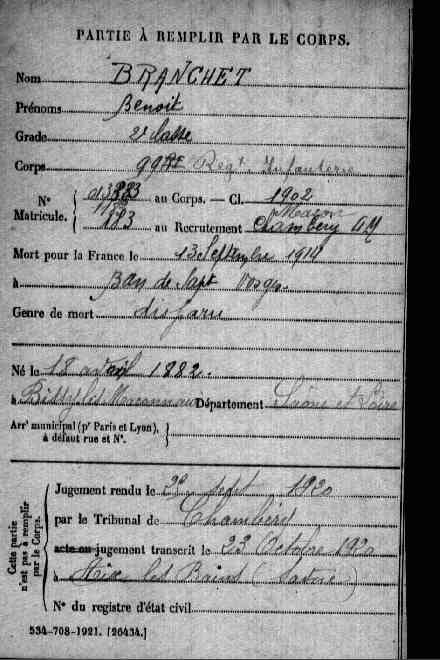 PARTIE À REMPLIR PAR LE CORPS.
Nom BRANCHET
Prénoms Benoit
Grade 2e classe
Corps 99me Régt Infanterie
N° Matricule. { au Corps. — Cl. 1902
Macon
183 au Recrutement Chambéry
Mort pour la France le 13 Septembre 1914
à Ban de Sapt Vosges.
Genre de mort disparu
Né le 18 avril 1882.
à Bissy les Maconnaux Département Saône et Loire
Arrt municipal (pr Paris et Lyon), à défaut rue et N°. }
Cette partie n'est pas à remplir par le Corps.
Jugement rendu le sept 1920
par le Tribunal de Chambéry
acte ou jugement transcrit le 23 Octobre 1920
à Aix les Bains (Savoie)
N° du registre d'état civil
534-708-1921. [26434.]